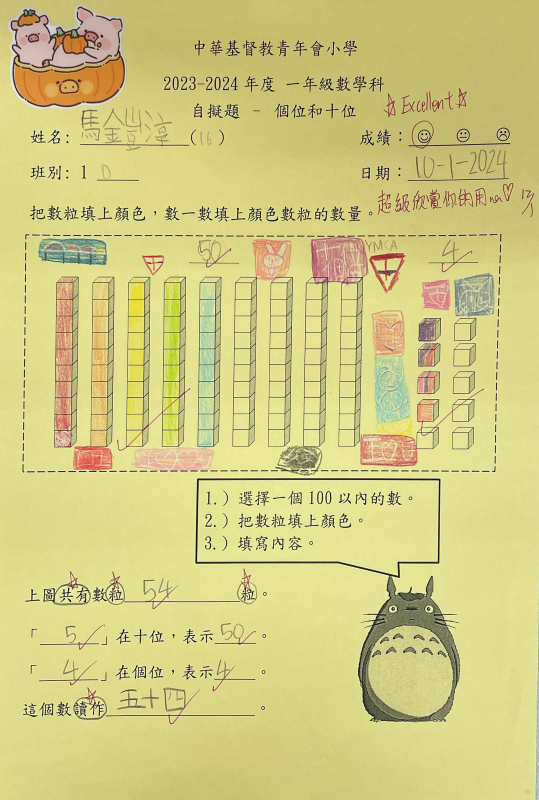 中華基督教青年會小學
2023-2024 年度 一年級數學科
自擬題 - 個位和十位
☆Excellent☆
姓名: 馬金豈淳 (16) 成績:
班別: 1 D 日期: 10-1-2024
超級欣賞你的用
把數粒填上顏色,數一數填上顏色數粒的數量。
50 YMCA 4
1.) 選擇一個 100 以內的數。
2.) 把數粒填上顏色。
3.) 填寫內容。
上圖共有數粒 54 粒。
「 5 」在十位,表示 50 。
「 4 」在個位,表示 4 。
這個數讀作 五十四 。